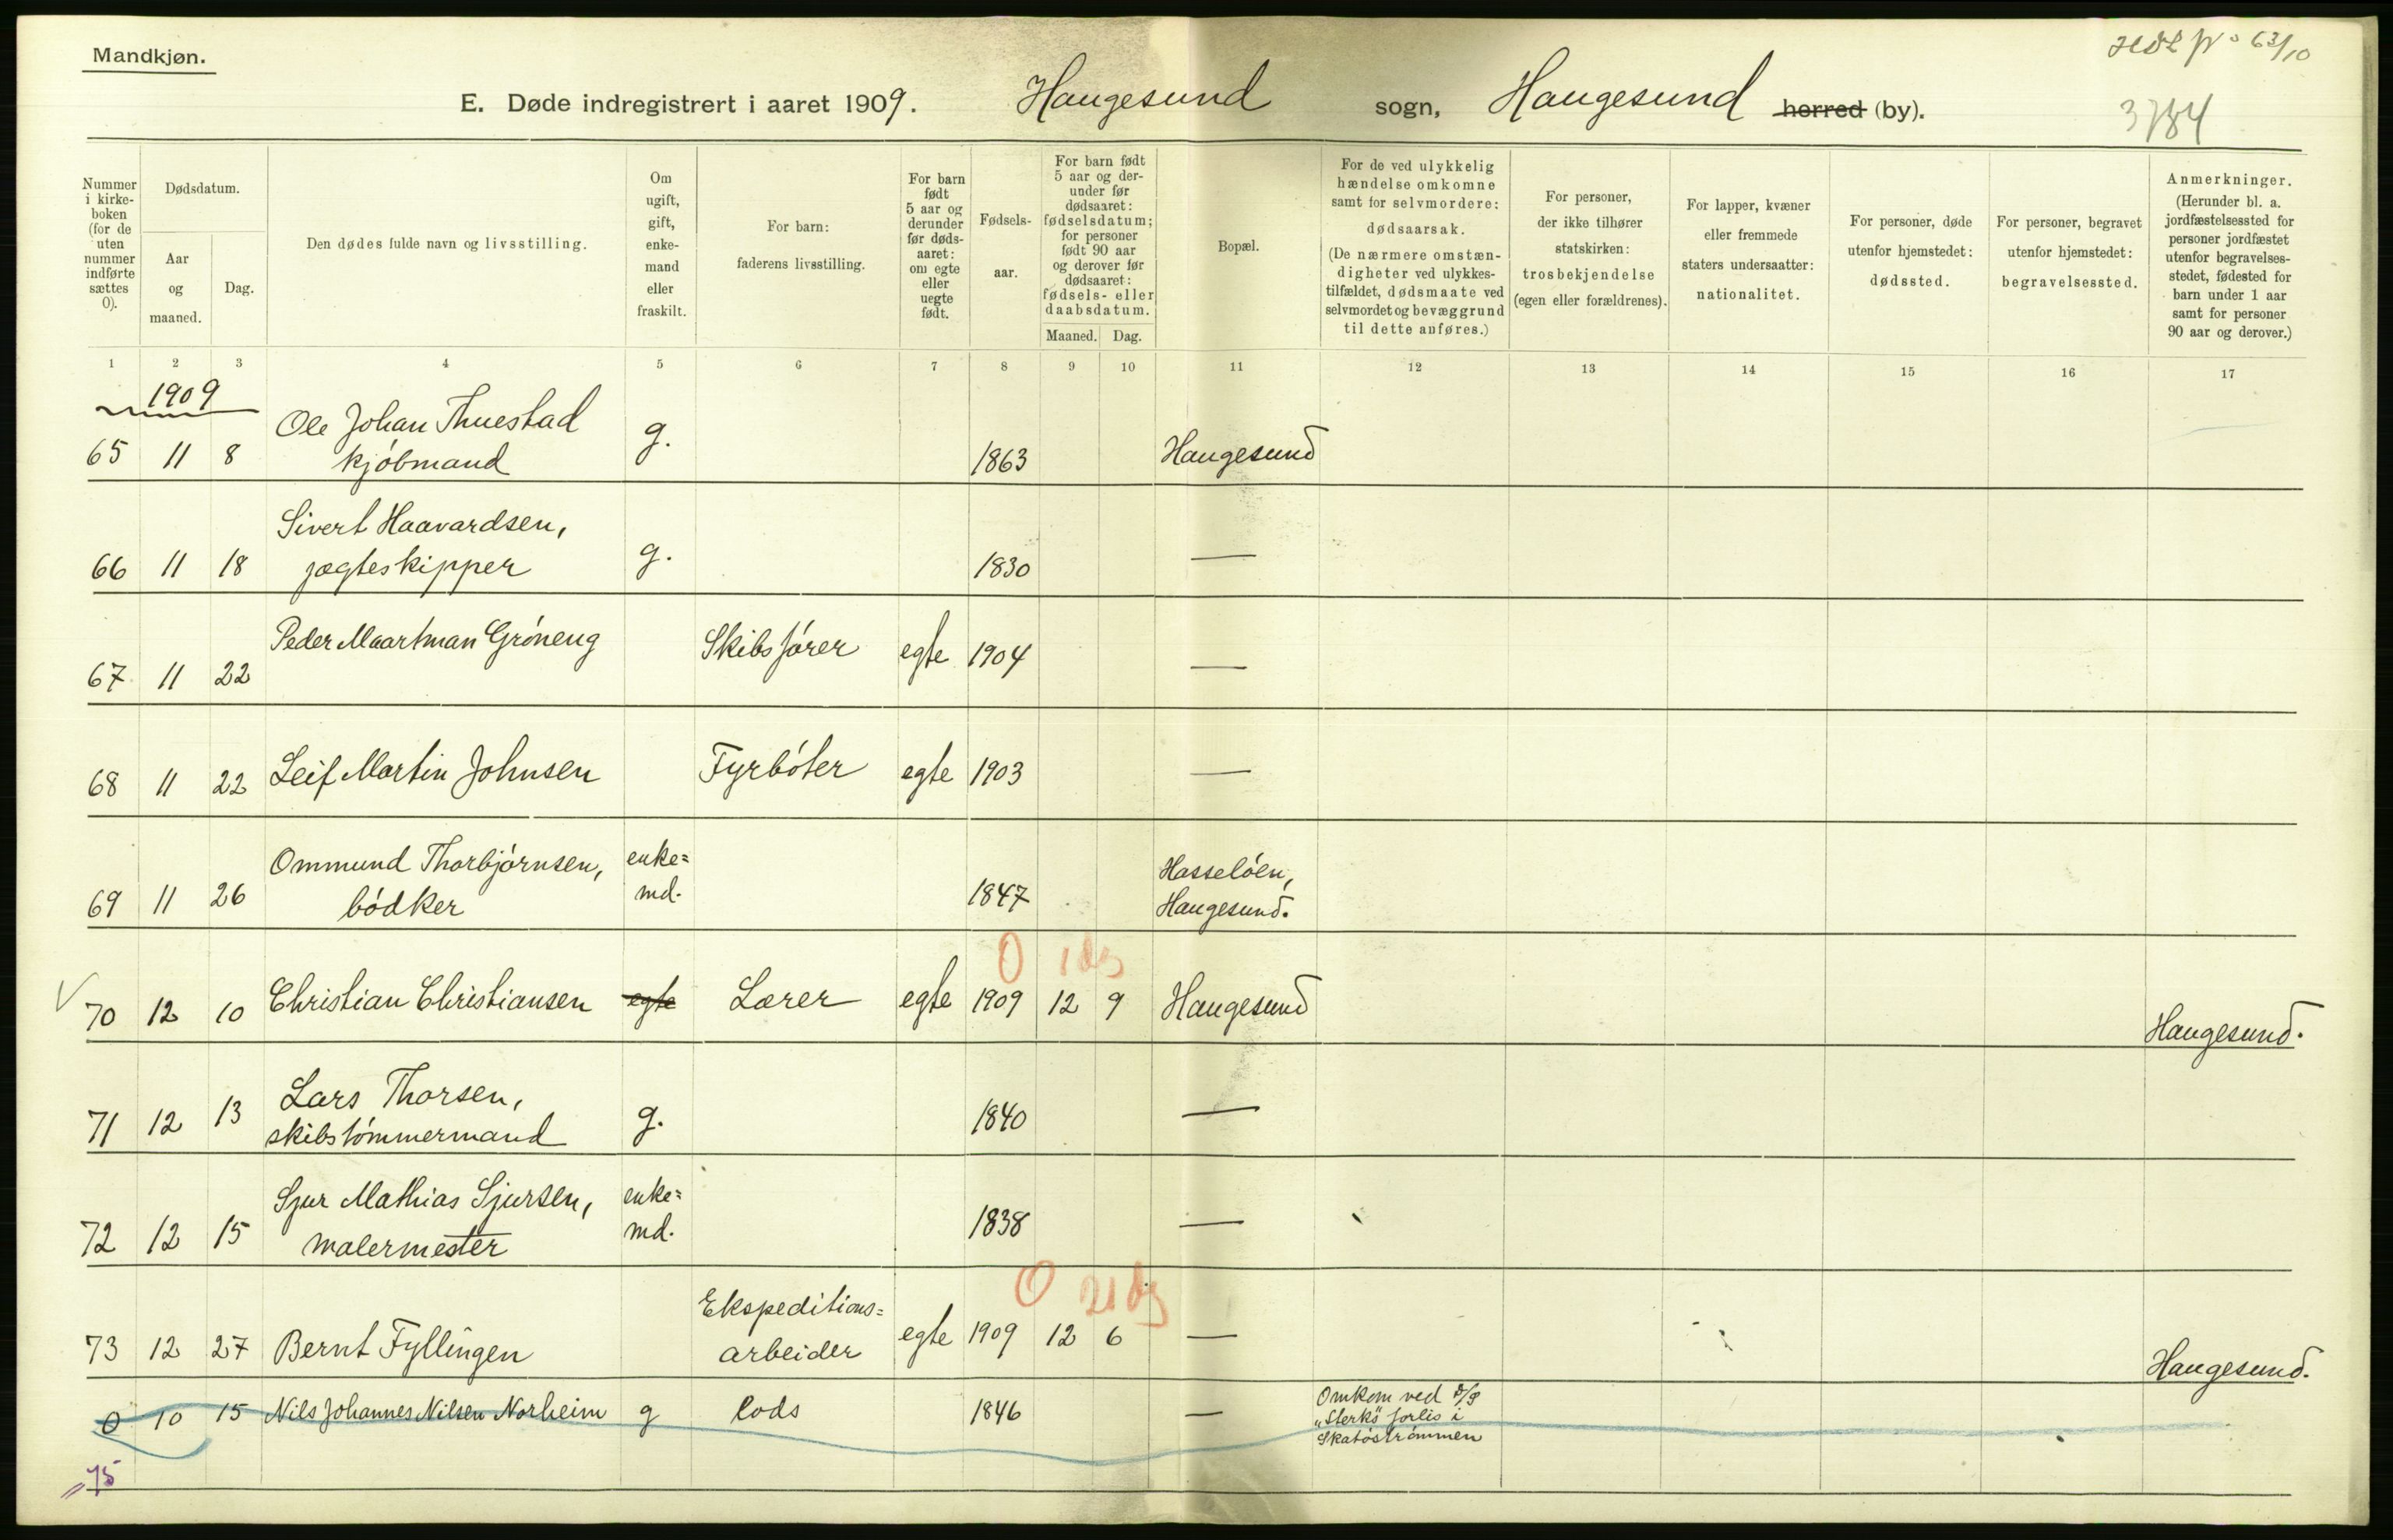 Mandkjøn.
E. Døde indregistrert i aaret 1909. Haugesund sogn, Haugesund herred (by).
63/10
3784
Nummer i kirke-boken (for de uten nummer indførte sættes 0).
Dødsdatum.
Aar og maaned.
Dag.
Den dødes fulde navn og livsstilling.
Om ugift, gift, enke-mand eller fraskilt.
For barn: faderens livsstilling.
For barn født 5 aar og derunder før døds-aaret: om egte eller uegte født.
Fødsels-aar.
For barn født 5 aar og der-under før dødsaaret: fødselsdatum; for personer født 90 aar og derover før dødsaaret: fødsels- eller daabsdatum.
Maaned. Dag.
Bopæl.
For de ved ulykkelig hændelse omkomne samt for selvmordere: dødsaarsak. (De nærmere omstæn-digheter ved ulykkes-tilfældet, dødsmaate ved selvmordet og bevæggrund til dette anføres.)
For personer, der ikke tilhører statskirken: trosbekjendelse (egen eller forældrenes).
For lapper, kvæner eller fremmede staters undersaatter: nationalitet.
For personer, døde utenfor hjemstedet: dødssted.
For personer, begravet utenfor hjemstedet: begravelsessted.
Anmerkninger. (Herunder bl. a. jordfæstelsessted for personer jordfæstet utenfor begravelses-stedet, fødested for barn under 1 aar samt for personer 90 aar og derover.)
1 2 3 4 5 6 7 8 9 10 11 12 13 14 15 16 17
1909
65 11 8 Ole Johan Thuestad g. 1863 Haugesund
kjøbmand
66 11 18 Sivert Haavardsen, g. 1830 —
jægteskipper
67 11 22 Peder Maartman Grøneng Skibsfører egte 1904 —
68 11 22 Leif Martin Johnsen Fyrbøter egte 1903 —
69 11 26 Ommund Thorbjørnsen, enke= 1847 Hasseløen,
bødker md. Haugesund.
0 1 dg
70 12 10 Christian Christiansen egte Lærer egte 1909 12 9 Haugesund Haugesund.
71 12 13 Lars Thorsen, g. 1840 —
skibstømmermand
72 12 15 Sjur Mathias Sjursen, enke= 1838 —
malermester md.
0 21 dg
73 12 27 Bernt Fyllingen Ekspeditions= egte 1909 12 6 — Haugesund.
arbeider
0 10 15 Nils Johannes Nilsen Norheim g lods 1846 — Omkom ved D/S
"Sterks" forlis i
Skatøstrømmen
75